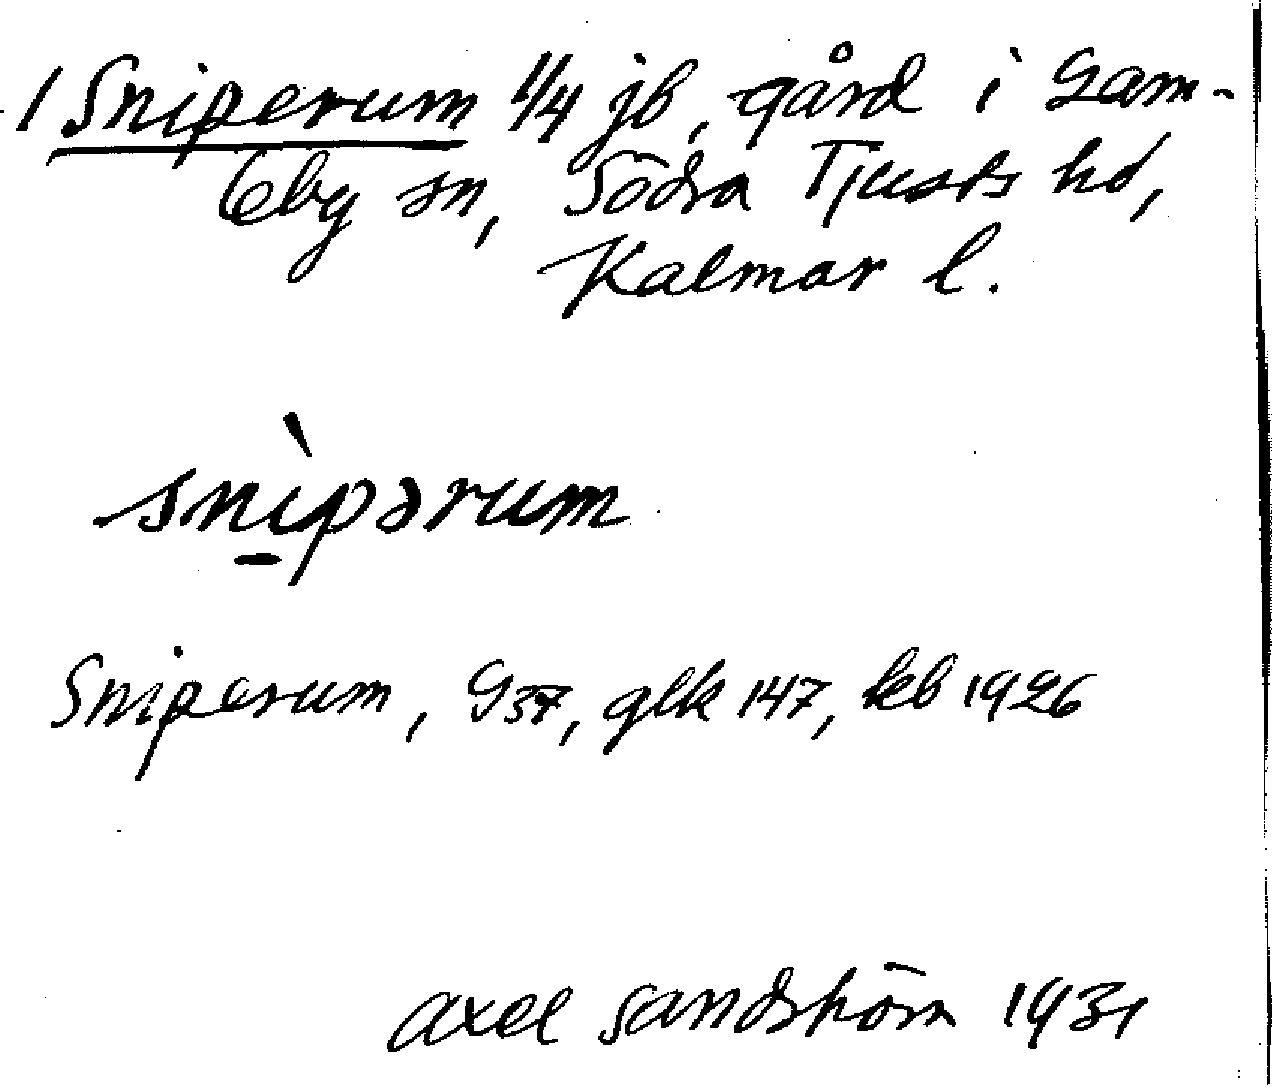 1 Sniperum 1/4 jb, gård i Gam-
leby sn, Södra Tjusts hd,
Kalmar l.
snìpərum
Sniperum, G37, glk 147, kb 1926
Axel Sandström 1931